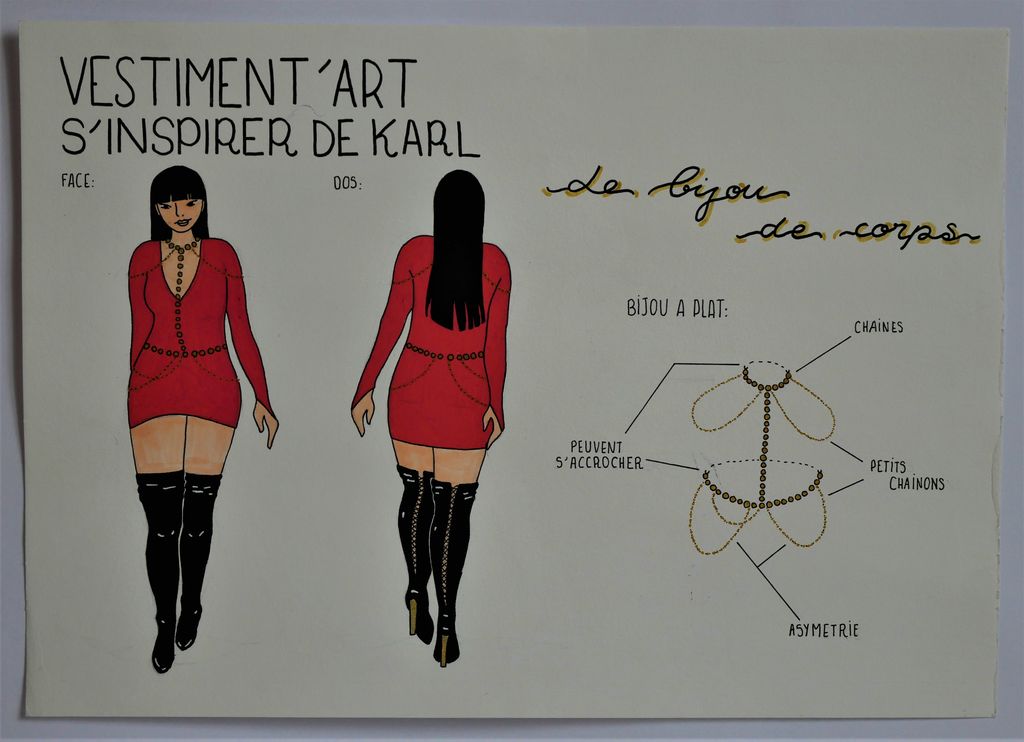 VESTIMENT'ART
S'INSPIRER DE KARL
FACE:
DOS:
Le bijou
de corps
BIJOU A PLAT:
CHAINES
PEUVENT
S'ACCROCHER
PETITS
CHAINONS
ASYMETRIE